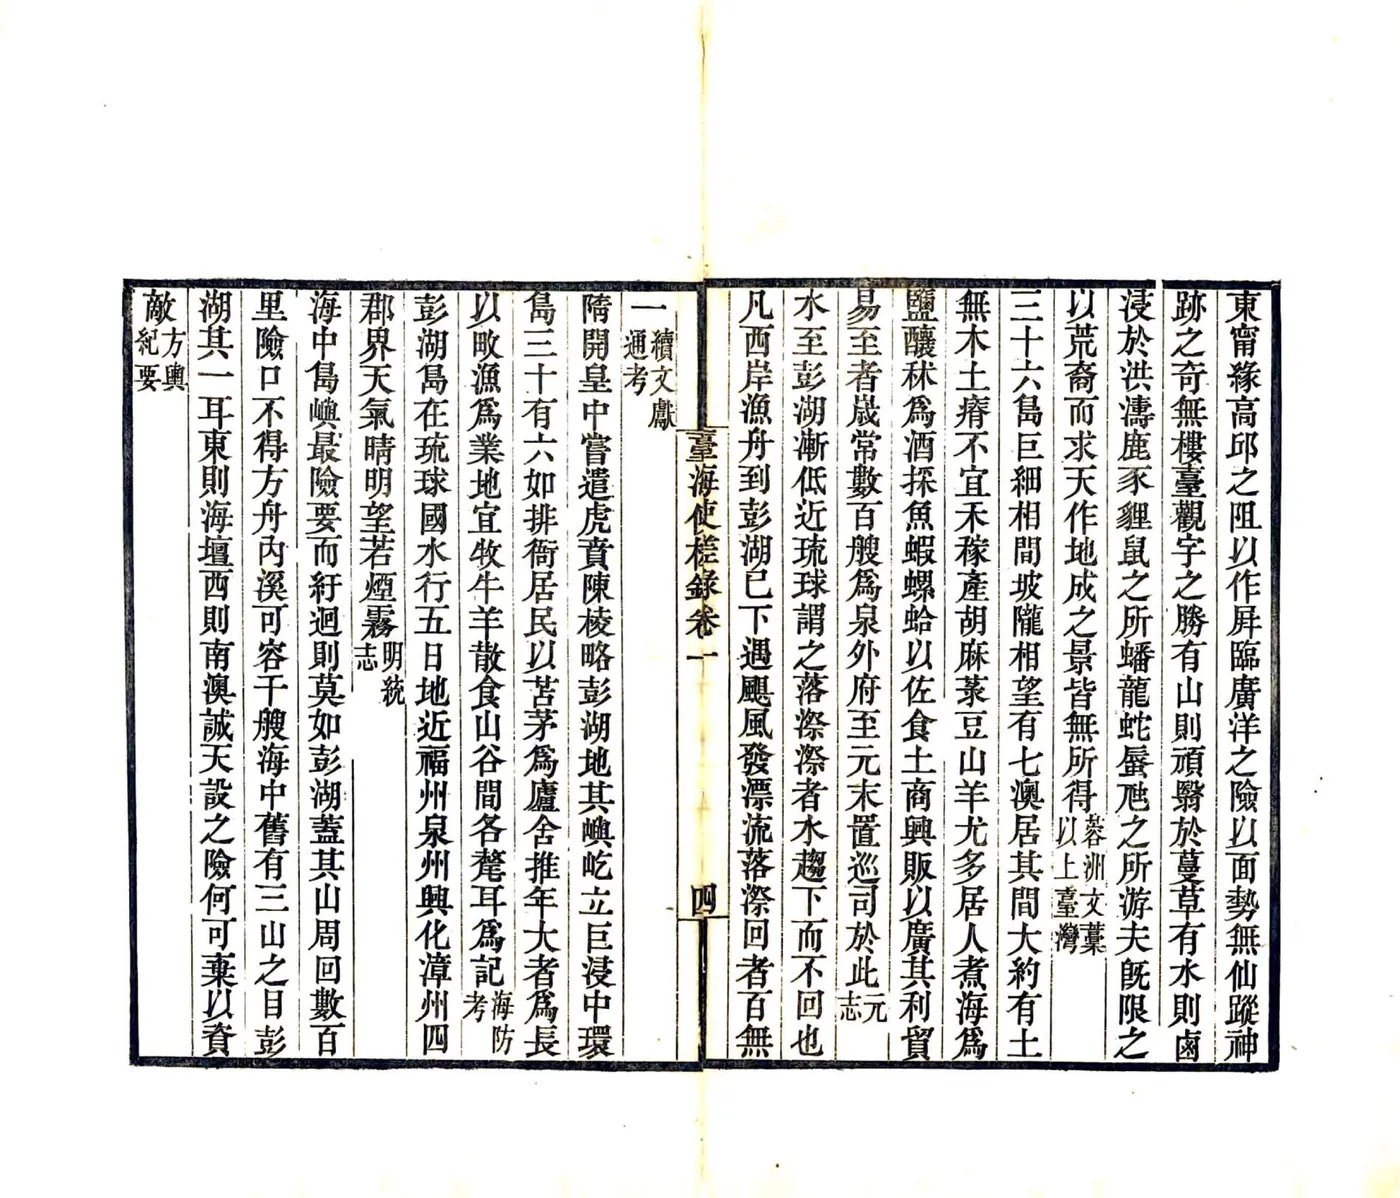 東甯緣高邱之阻以作屛臨廣洋之險以面勢無仙蹤神
跡之奇無樓臺觀宇之勝有山則頑翳於蔓草有水則鹵
浸於洪濤鹿豕貍鼠之所蟠龍蛇蜃虺之所游夫旣限之
以荒裔而求天作地成之景皆無所得蓉洲文藁以上臺灣
三十六島巨細相間坡隴相望有七澳居其間大約有土
無木土瘠不宜禾稼產胡麻菉豆山羊尤多居人煮海爲
鹽釀秫爲酒採魚蝦螺蛤以佐食土商興販以廣其利貿
易至者歲常數百艘爲泉外府至元末置巡司於此元志
水至彭湖漸低近琉球謂之落漈漈者水趨下而不回也
凡西岸漁舟到彭湖已下遇颶風發漂流落漈回者百無
臺海使槎錄卷一
四
一續文獻通考
隋開皇中嘗遣虎賁陳棱略彭湖地其嶼屹立巨浸中環
島三十有六如排衙居民以苫茅爲廬舍推年大者爲長
以畋漁爲業地宜牧牛羊散食山谷間各氂耳爲記海防考
彭湖島在琉球國水行五日地近福州泉州興化漳州四
郡界天氣晴明望若煙霧明統志
海中島嶼最險要而紆迴則莫如彭湖蓋其山周回數百
里險口不得方舟內溪可容千艘海中舊有三山之目彭
湖其一耳東則海壇西則南澳誠天設之險何可棄以資
敵方輿紀要